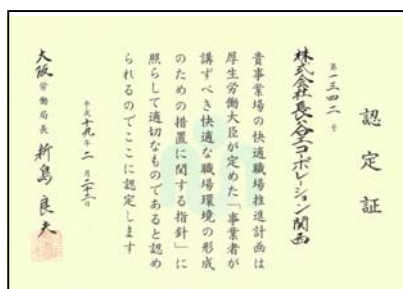 認定証
第一三四二号
株式会社長谷工コーポレーション関西
貴事業場の快適職場推進計画は
厚生労働大臣が定めた「事業者が
講ずべき快適な職場環境の形成
のための措置に関する指針」に
照らして適切なものであると認め
られるのでここに認定します
平成十九年二月二十二日
大阪労働局長 新島良夫